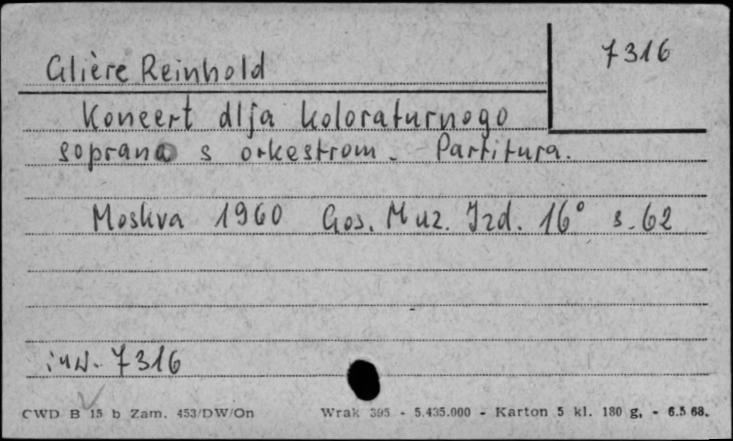 7316
Glière Reinhold
Koncert dlja koloraturnogo
soprana s orkestrom. Partitura.
Moskva 1960 Gos. Muz. Izd. 16° s. 62
inw. 7316
CWD B 15 b Zam. 453/DW/On Wrak 395 - 5.435.000 - Karton 5 kl. 180 g. - 6.5 68.